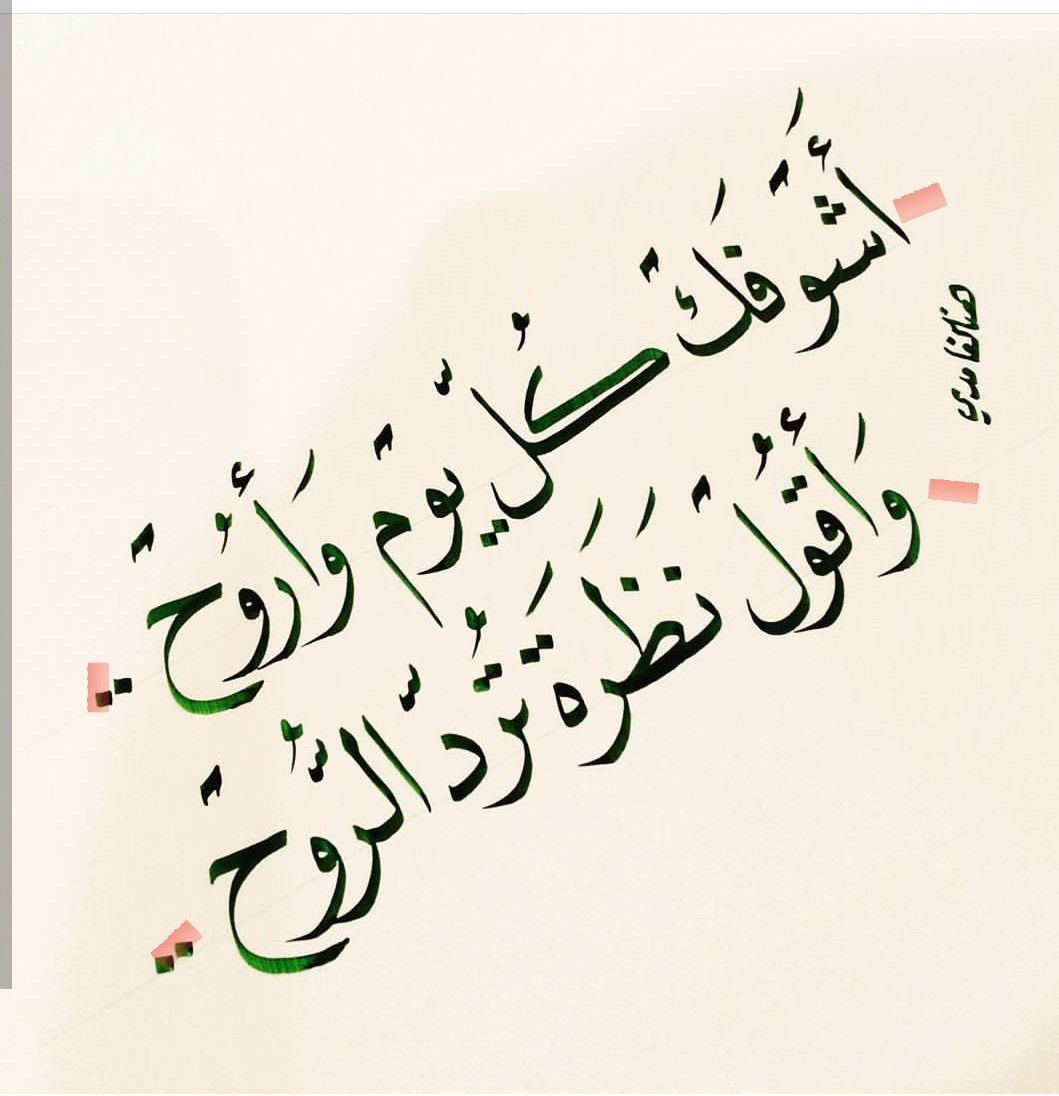 أَشوفَكْ كُلّ يَوْم وَأَرُوحْ..
وَأَقُولْ نَظَرَه تَرُدّ الرُّوحْ..
هناالغامدي